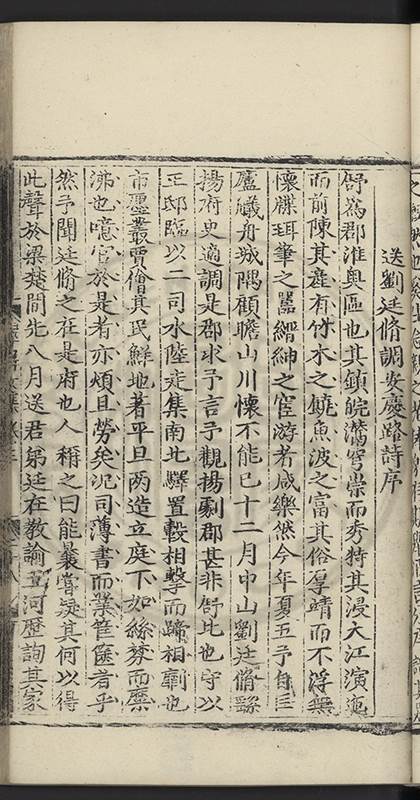 送劉廷脩調安慶路詩序
舒爲郡淮奥區也其鎮皖灊穹崇而秀特其浸大江演迤
而前陳其產有竹木之饒魚波之富其俗厚靖而不浮無
懷牒珥筆之嚚縉紳之宦游者咸樂然今年夏五予自三
廬艤舟城隅顧瞻山川懷不能已十二月中山劉廷脩繇
揚府史適調是郡求予言予觀揚劇郡甚非舒比也守以
王邸臨以二司水陸走集南北驛置轂相擊而蹄相劘也
市壥叢賈儈其民鮮地著平旦两造立庭下如絲棼而糜
沸也噫官於是者亦煩且勞矣况司薄書而業筐篋者乎
然予聞廷脩之在是府也人稱之曰能曩嘗疑其何以得
此聲於梁楚間先八月送君弟廷在教諭五河歷詢其家